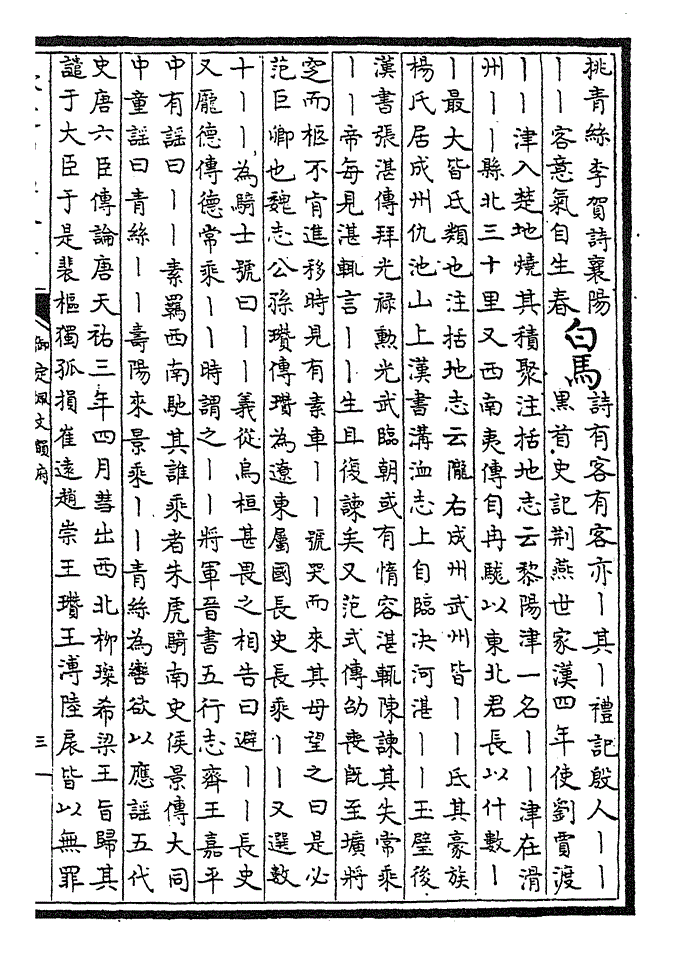 挑青絲李賀詩襄陽
丨丨客意氣自生春
白馬
詩有客有客亦丨其丨禮記殷人丨丨
黑首史記荊燕世家漢四年使劉賈渡
丨丨津入楚地燒其積聚注括地志云黎陽津一名丨丨津在滑
州丨丨縣北三十里又西南夷傳自冉駹以東北君長以什數丨
丨最大皆氐類也注括地志云隴右成州武州皆丨丨氐其豪族
楊氏居成州仇池山上漢書溝洫志上自臨决河湛丨丨玉璧後
漢書張湛傳拜光祿勳光武臨朝或有惰容湛輒陳諫其失常乘
丨丨帝每見湛輒言丨丨生且復諫矣又范式傳劭喪既至壙將
窆而柩不肯進移時見有素車丨丨號哭而來其母望之曰是必
范巨卿也魏志公孫瓚傳瓚為遼東屬國長史長乘丨丨又選數
十丨丨為騎士號曰丨丨義從烏桓甚畏之相告曰避丨丨長史
又龐德傳德常乘丨丨時謂之丨丨將軍晉書五行志齊王嘉平
中有謡曰丨丨素羈西南馳其誰乘者朱虎騎南史侯景傳大同
中童謡曰青絲丨丨壽陽來景乘丨丨青絲為轡欲以應謡五代
史唐六臣傳論唐天祐三年四月彗出西北柳璨希梁王旨歸其
譴于大臣于是裴樞獨孤損崔遠趙崇王瓚王溥陸扆皆以無罪
御定佩文韻府
三